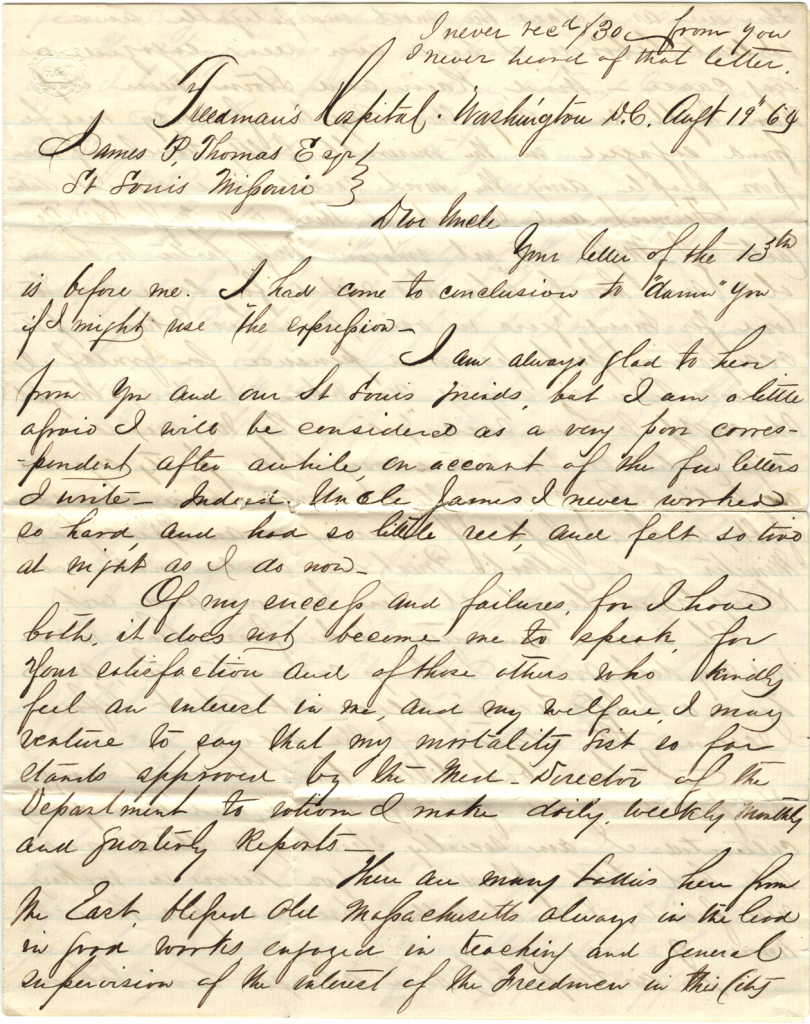 I never rec'd $30 from you
I never heard of that letter.
Freedman's Hospital. Washington D.C. Augt 19" 64
James P. Thomas Esqr
St Louis Missouri
Dear Uncle
Your letter of the 13th
is before me. I had come to conclusion to "damn" you
if I might use the expression—
I am always glad to hear
from you and our St Louis friends, but I am a little
afraid I will be considered as a very poor corres-
-pondent, after awhile, on account of the few letters
I write— Indeed. Uncle James I never worked
so hard, and had so little rest, and felt so tired
at night as I do now—
Of my success and failures, for I have
both, it does not become me to speak, for
your satisfaction and of those others who kindly
feel an interest in me, and my welfare, I may
venture to say that my mortality List so far
stands approved by the Med-Director of the
Department to whom I make daily, weekly monthly
and quarterly Reports—
There are many Ladies here from
the East, blessed Old Massachusetts always in the lead
in good works, engaged in teaching and general
supervision of the interest of the Freedmen in this City